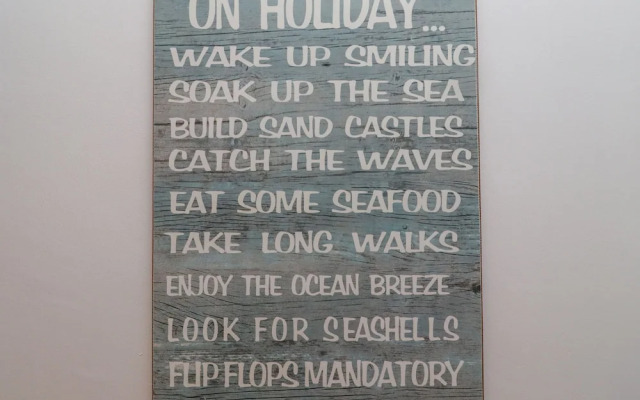 ON HOLIDAY...
WAKE UP SMILING
SOAK UP THE SEA
BUILD SAND CASTLES
CATCH THE WAVES
EAT SOME SEAFOOD
TAKE LONG WALKS
ENJOY THE OCEAN BREEZE
LOOK FOR SEASHELLS
FLIP FLOPS MANDATORY